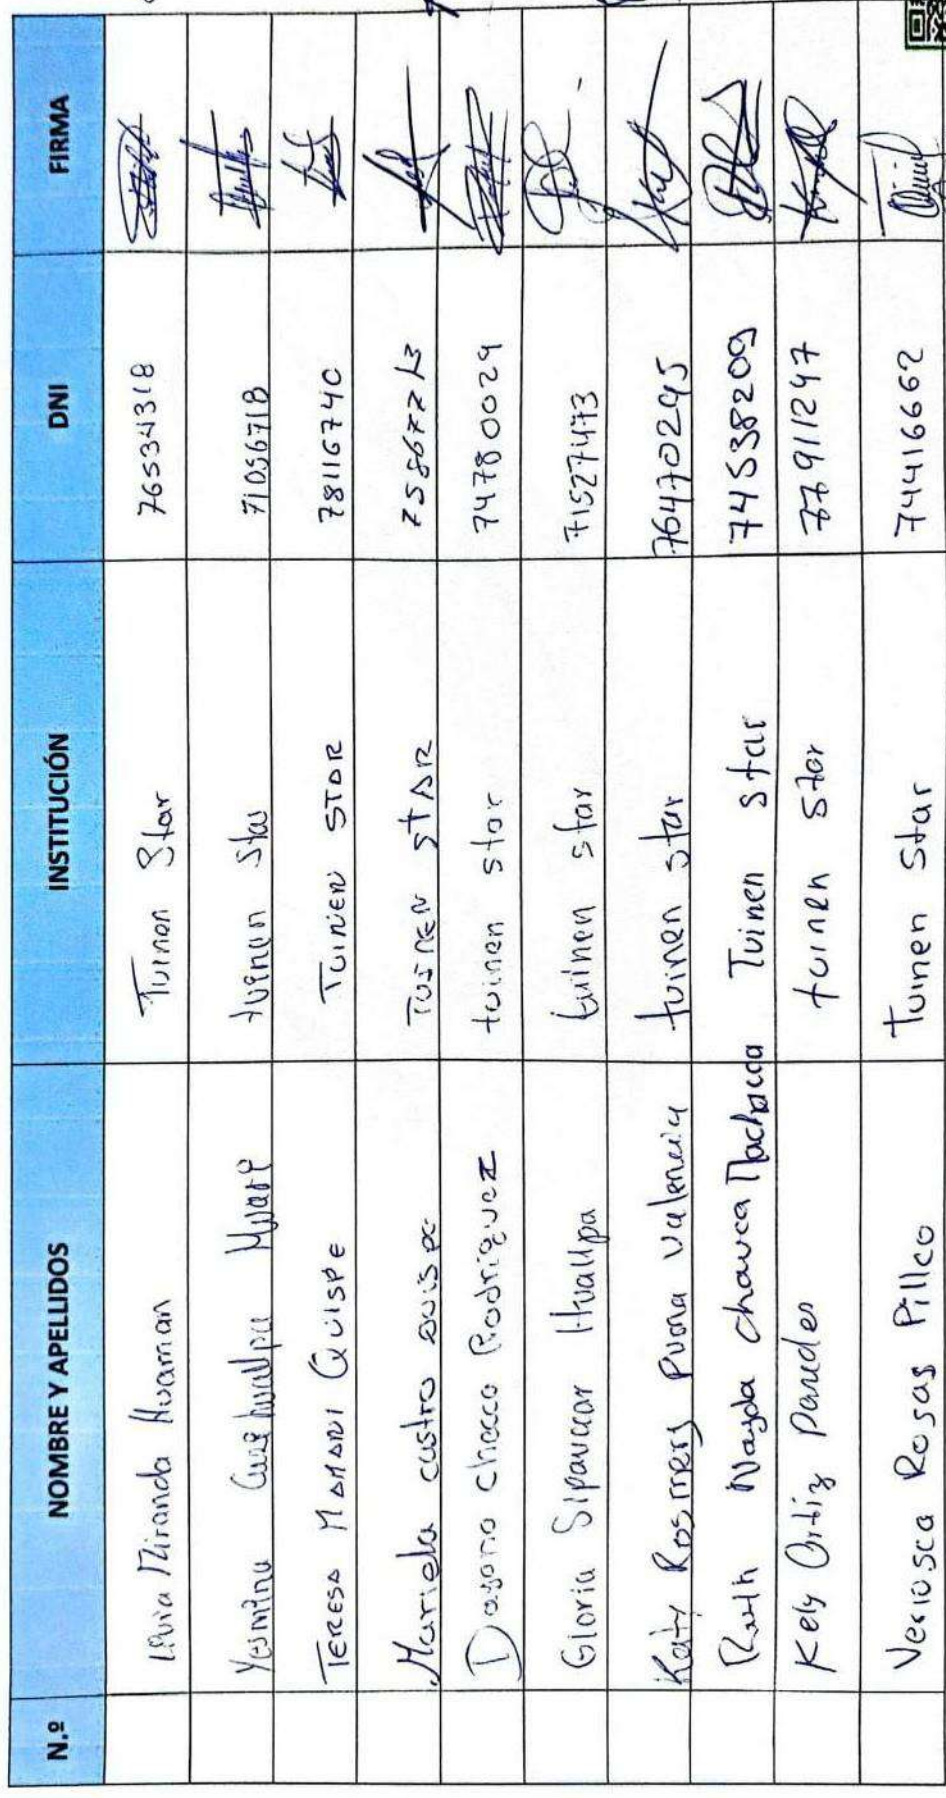 N.º NOMBRE Y APELLIDOS INSTITUCIÓN DNI FIRMA
Miranda Huaman Tuinen Star 76534318
Yesmina Mirari tuinen Star 71056718
TERESA MAMANI QUISPE TUINEN STAR 78116740
Mariela castro quispe TUINEN STAR 75867713
Dayana checco Rodriguez tuinen star 74780029
Gloria Sipaucar Huallpa tuinen star 71527473
Katy Rosmery Puma Valencia tuinen star 76470295
Ruth Nayda chauca Machacca Tuinen star 74538209
Kely Ortiz Paredes tuinen star 77911247
Veriosca Rosas Pillco Tuinen Star 74416662